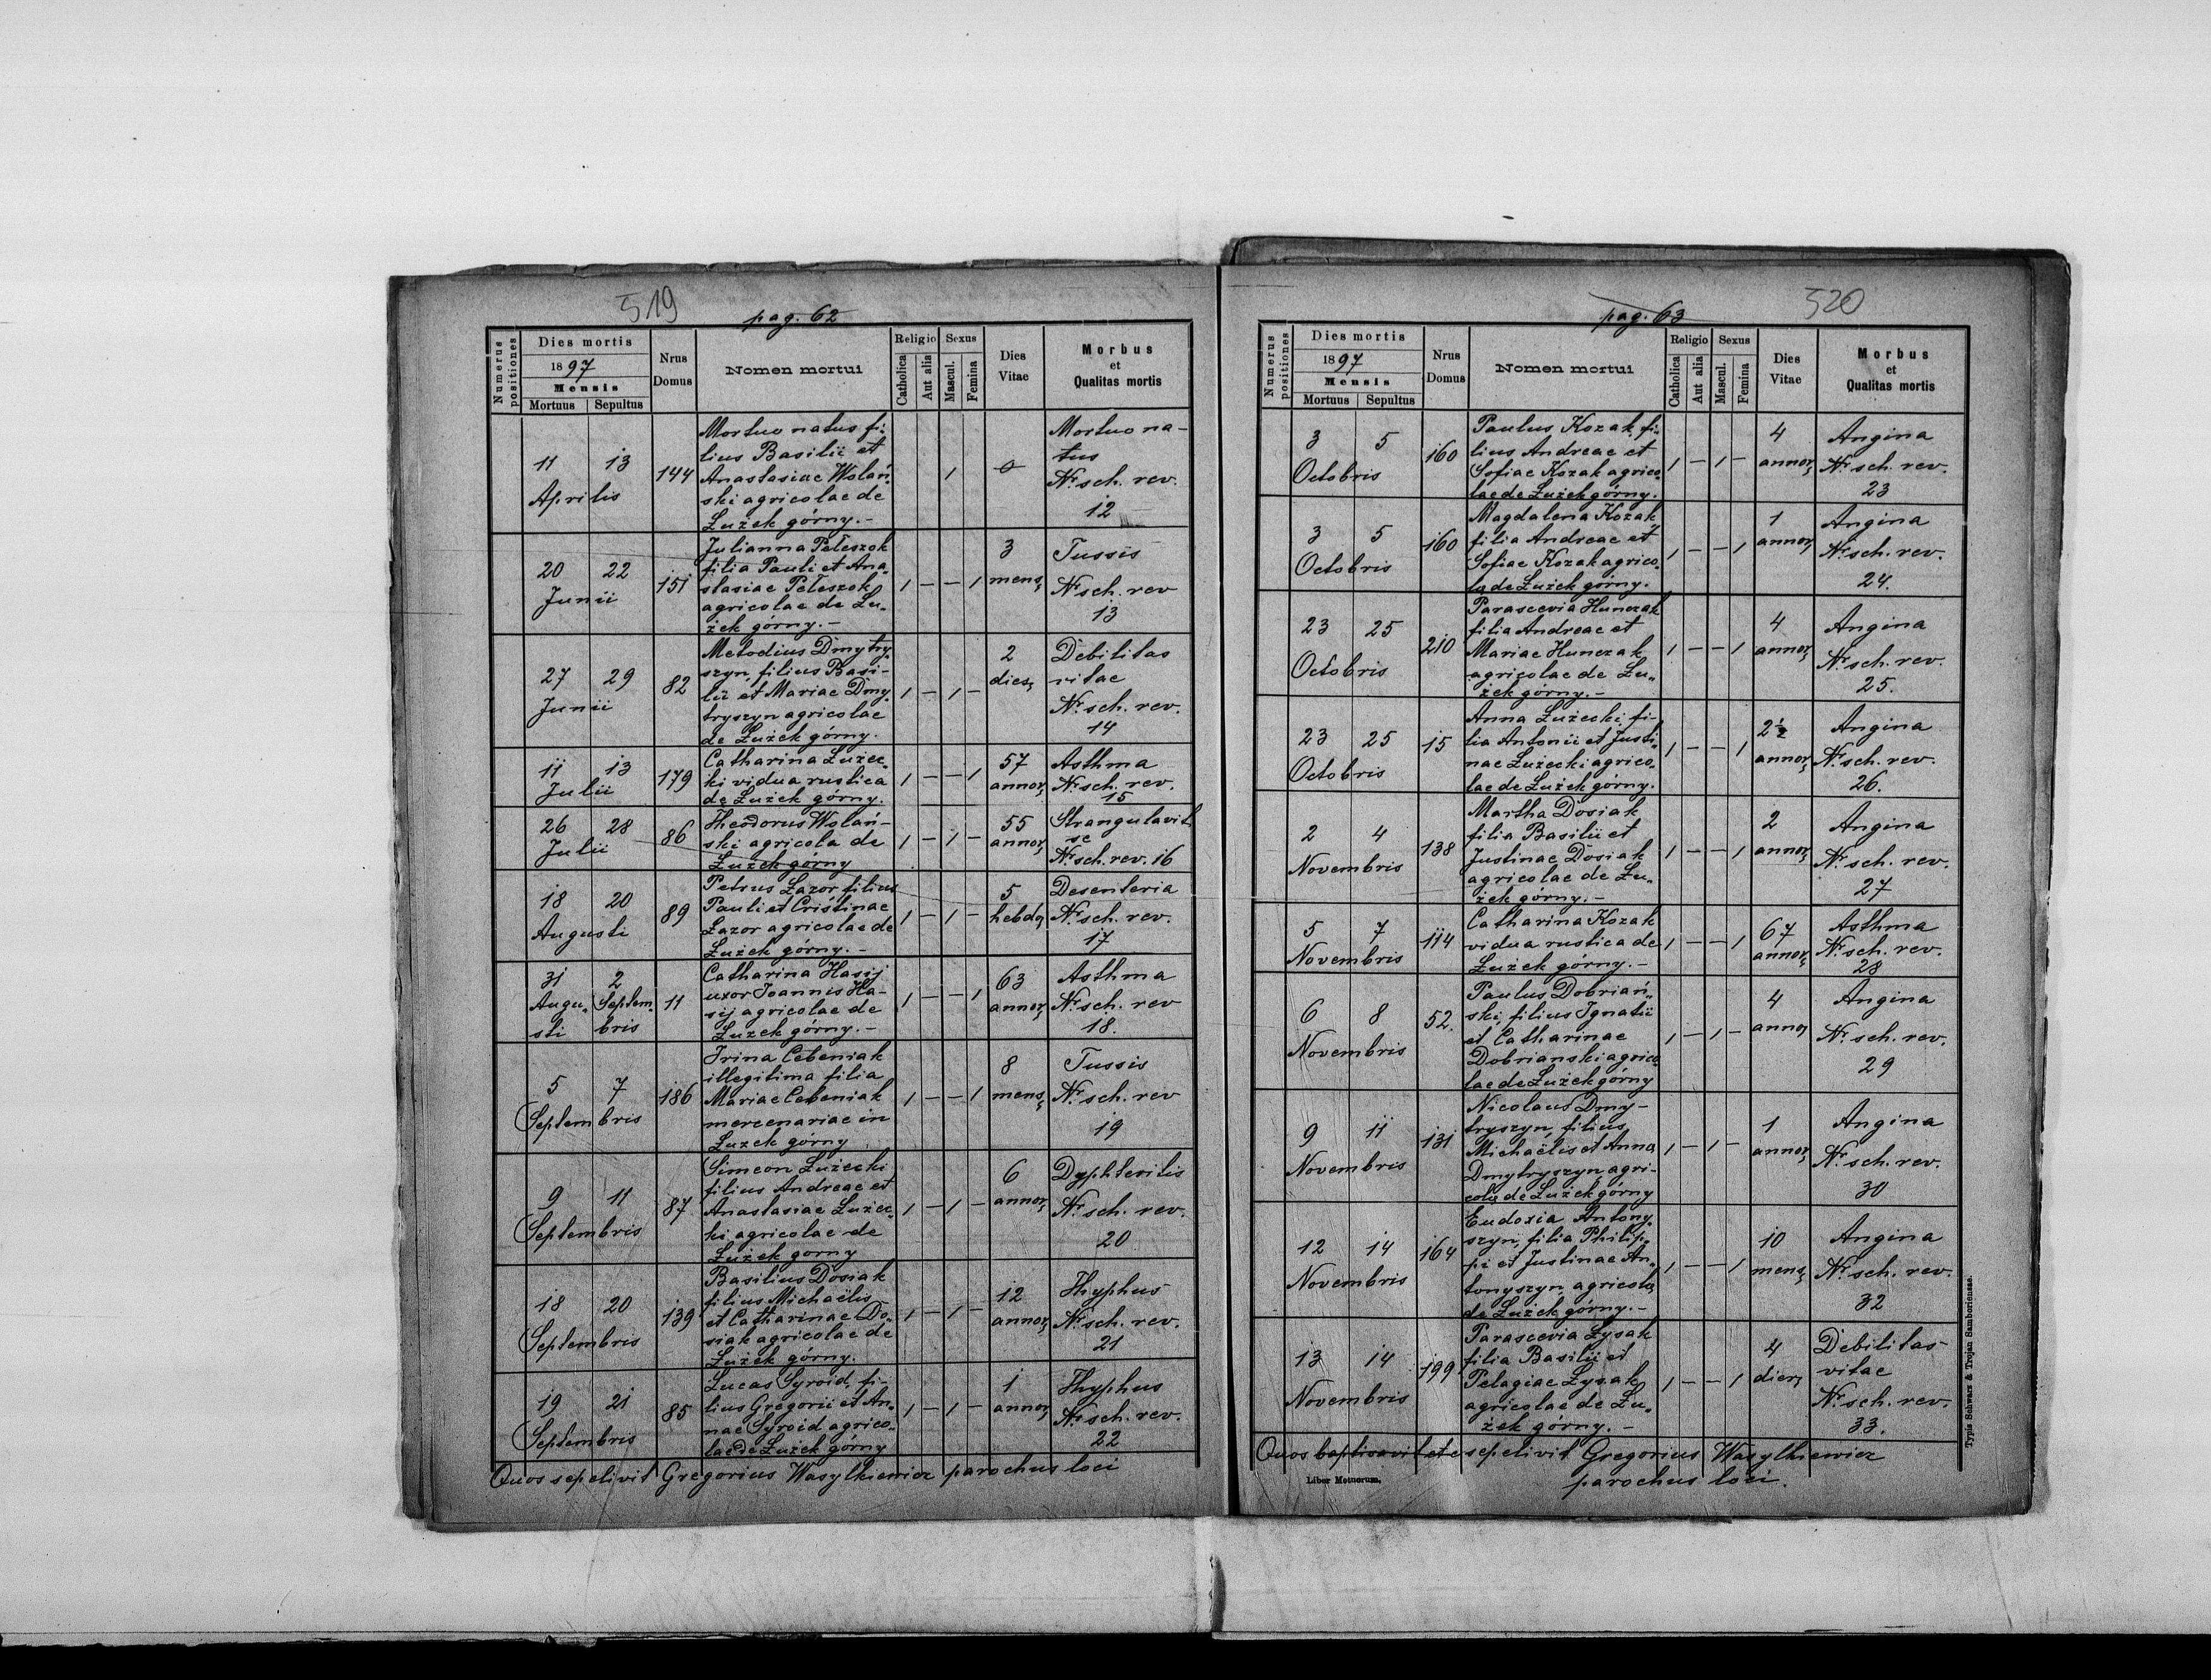 519
pag. 62
Numerus positiones
Dies mortis
1897
Mensis
Mortuus Sepultus
Nrus Domus
Nomen mortui
Religio
Catholica
Aut alia
Sexus
Mascul.
Femina
Dies Vitae
Morbus
et
Qualitas mortis
11 13
Aprilis
144
Mortuo natus fi-
lius Basilii et
Anastasiae Wolań-
ski agricolae de
Łużek górny.-
1
0
Mortuo na-
tus
Nr sch. rev.
12
20 22
Junii
151
Julianna Peteszok
filia Pauli et Ana-
stasiae Peteszok
agricolae de Łu-
żek górny.-
1 – – 1
3
mens
Tussis
Nr sch. rev
13
27 29
Junii
82
Metodius Dmytry-
szyn filius Basi-
lii et Mariae Dmy-
tryszyn agricolae
de Łużek górny.
1 – 1 –
2
dies
Debilitas
vitae
Nr sch. rev.
14
11 13
Julii
179
Catharina Łużec-
ki vidua rustica
de Łużek górny.
1 – – 1
57
annor
Asthma
Nr sch. rev.
15
26 28
Julii
86
Theodorus Wolań-
ski agricola de
Łużek górny
1 – 1 –
55
annor
Strangulavit
se
Nr sch. rev. 16
18 20
Augusti
89
Petrus Łazor filius
Pauli et Cristinae
Łazor agricolae de
Łużek górny.-
1 – 1 –
5
hebdo
Desenteria
Nr sch. rev.
17
31 2
Augu- Septem-
sti bris
11
Catharina Hasij
uxor Joannis Ha-
sij agricolae de
Łużek górny.-
1 – – 1
63
annor
Asthma
Nr sch. rev
18.
5 7
Septembris
186
Irina Cebeniak
illegitima filia
Mariae Cebeniak
mercenariae in
Łużek górny
1 – – 1
8
mens
Tussis
Nr sch. rev
19
9 11
Septembris
87
Simeon Łużecki
filius Andreae et
Anastasiae Łużec-
ki agricolae de
Łużek gorny
1 – 1 –
6
annor
Dyphteritis
Nr sch. rev.
20
18 20
Septembris
139
Basilius Dosiak
filius Michaëlis
et Catharinae Do-
siak agricolae de
Łużek górny.
1 – 1 –
12
annor
Thyphus
Nr sch. rev.
21
19 21
Septembris
85
Lucas Syroid, fi-
lius Gregorii et An-
nae Syroid agrico-
lae de Łużek górny
1 – 1 –
1
annor
Thyphus
Nr sch. rev.
22
Quos sepelivit Gregorius Wasylkiewicz parochus loci
520
pag. 63
Numerus positiones
Dies mortis
1897
Mensis
Mortuus Sepultus
Nrus Domus
Nomen mortui
Religio
Catholica
Aut alia
Sexus
Mascul.
Femina
Dies Vitae
Morbus
et
Qualitas mortis
3 5
Octobris
160
Paulus Kozak fi-
lius Andreae et
Sofiae Kozak agrico-
lae de Łużek górny.
1 – 1 –
4
annor
Angina
Nr sch. rev.
23
3 5
Octobris
160
Magdalena Kozak
filia Andreae et
Sofiae Kozak agrico-
la de Łużek górny.
1 – – 1
1
annor
Angina
Nr sch. rev.
24.
23 25
Octobris
210
Parascevia Hunczak
filia Andreae et
Mariae Hunczak
agricolae de Łu-
żek górny.-
1 – – 1
4
annor
Angina
Nr sch. rev.
25.
23 25
Octobris
15
Anna Łużecki, fi-
lia Antonii et Justi-
nae Łużecki agrico-
lae de Łużek górny.
1 – – 1
2½
annor
Angina
Nr sch. rev.
26.
2 4
Novembris
138
Martha Dosiak
filia Basilii et
Justinae Dosiak
agricolae de Łu-
żek górny.-
1 – – 1
2
annor
Angina
Nr sch. rev.
27
5 7
Novembris
114
Catharina Kozak
vidua rustica de
Łużek górny.-
1 – – 1
67
annor
Asthma
Nr sch. rev.
28
6 8
Novembris
52.
Paulus Dobriań-
ski, filius Ignatii
et Catharinae
Dobrianski agrico-
lae de Łużek górny
1 – 1 –
4
annor
Angina
Nr sch. rev.
29
9 11
Novembris
131
Nicolaus Dmy-
tryszyn, filius
Michaëlis et Anna
Dmytryszyn, agri-
cola de Łużek górny
1 – 1 –
1
annor
Angina
Nr sch. rev.
30
12 14
Novembris
164
Eudoxia Antony-
szyn, filia Philip-
pi et Justinae An-
tonyszyn, agricola
de Łużek górny.-
1 – – 1
10
mens
Angina
Nr sch. rev.
32
13 14
Novembris
199
Parascevia Łysak
filia Basilii et
Pelagiae Łysak
agricolae de Łu-
żek górny.-
1 – – 1
4
dier
Debilitas
vitae
Nr sch. rev.
33.
Quos baptisavit et sepelivit Gregorius Wasylkiewicz
parochus loci.
Liber Motuorum.
Typis Schwarz & Trojan Samboriensae.